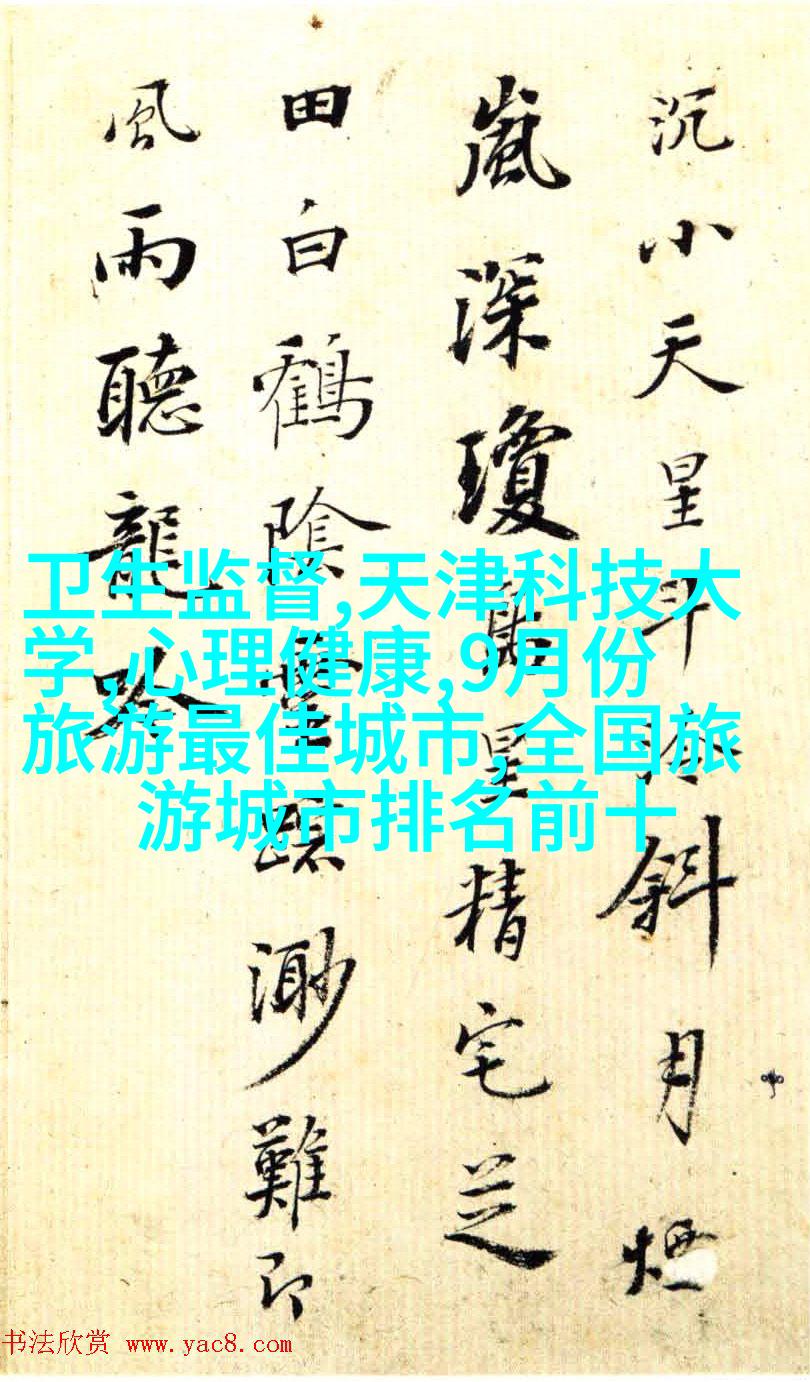 沉小天星斗冷斜月煙
嵐深瓊星精宅芝
田白鶴陰靈蹤渺難即
風雨聽龍吟
卫生监督,天津科技大
学,心理健康,9月份
旅游最佳城市,全国旅
游城市排名前十
书法欣赏 www.yac8.com